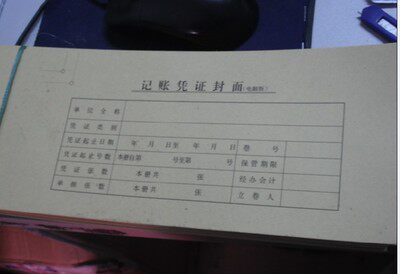 记账凭证封面(电脑版)
单位全称
凭证类别
凭证起止日期 年 月 日至 年 月 日 卷 号
凭证起止号数 本册自第 号至第 号 保管期限
凭证张数 本册共 张 经办会计
单据张数 本册共 张 立卷人